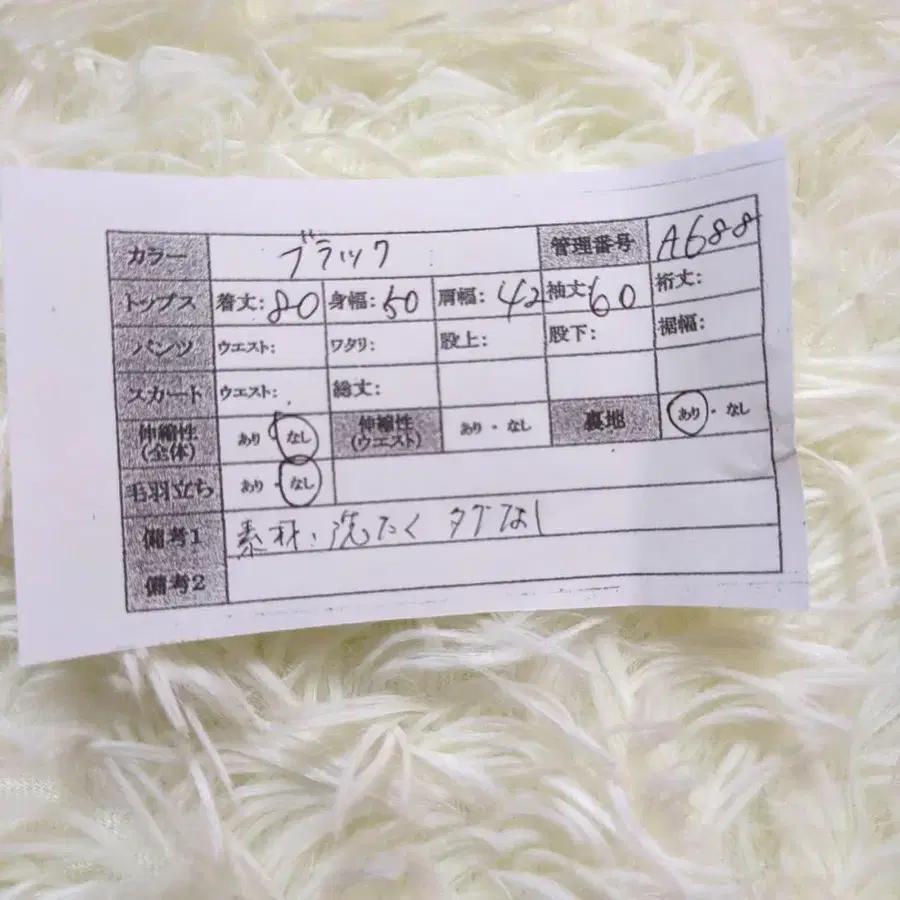 カラー ブラック 管理番号 A688
トップス 着丈:80 身幅:50 肩幅:42 袖丈:60 裄丈:
パンツ ウエスト: ワタリ: 股上: 股下: 裾幅:
スカート ウエスト: 総丈:
伸縮性(全体) あり・なし 伸縮性(ウエスト) あり・なし 裏地 あり・なし
毛羽立ち あり・なし
備考1 素材:洗たくタグなし
備考2